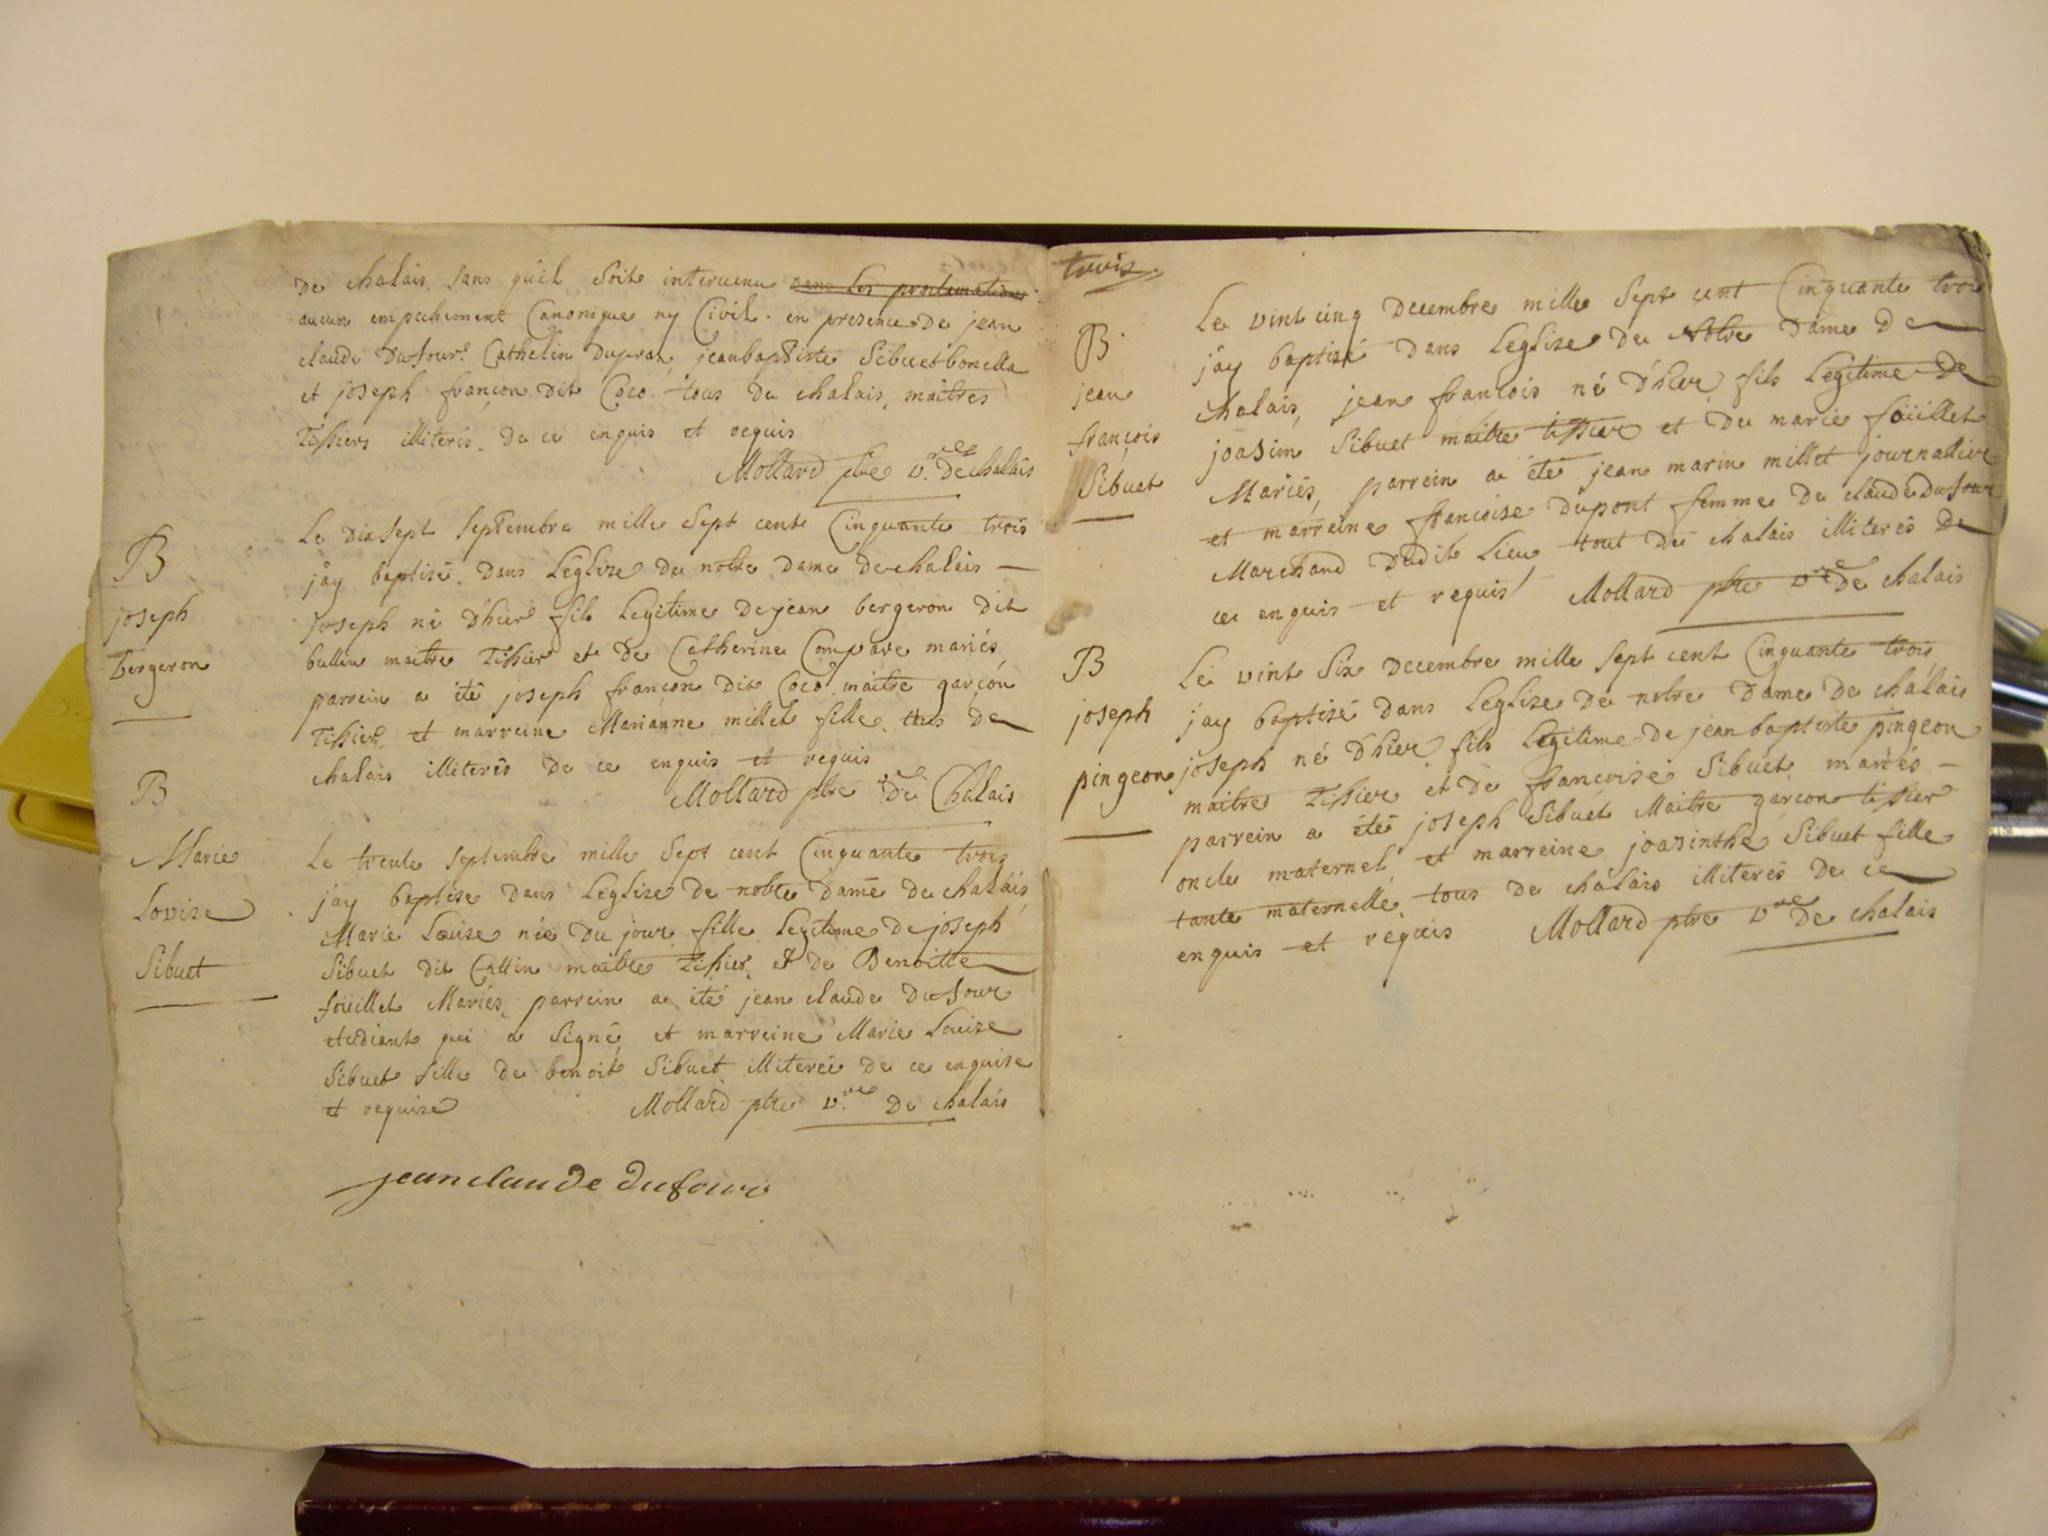 De chalais sans qu'il soit intervenu dans les proclamations
aucun empechement Canonique ny Civil. en presence De jean
claude Dufour. Cathelin Dupraz, jeanbaptiste Sibuet bonella
et joseph françon dit Coco tous de chalais, maitres
Tissiers illiterés. De ce enquis et requis
Mollard ptre v.re De chalais
B
joseph
bergeron
Le Dixsept Septembre mille Sept cent Cinquante trois
j'ay baptisé dans L'eglize de notre dame de chalais
joseph né D'hier fils Legitime De jean bergeron dit
bullin maitre Tissier et De Catherine Compare mariés
parrein a été joseph françon dit Coco maitre garçon
Tissier, et marreine Marianne millet fille tous De
chalais illiterés De ce enquis et requis
Mollard ptre v.re De Chalais
B
Marie
Lovize
Sibuet
Le trente Septembre mille Sept cent Cinquante trois
jay baptise dans L'eglize de notre dame de chalais
Marie Louise née Du jour fille Legitime De joseph
Sibuet dit Cattin maitre Tissier, et De Benoitte
foüillet Mariés, parrein a été jean claude Dufour
etudiant qui a Signé, et marreine Marie Louize
Sibuet fille de benoit Sibuet illiterée De ce enquise
et requize
Mollard ptre v.re De chalais
jeanclaude dufour
trois
B
jean
françois
Sibuet
Le vint cinq Decembre mille Sept cent Cinquante trois
j'ay baptizé dans L'eglize De Notre Dame De
chalais, jean francois né D'hier fils Legitime De
joasim Sibuet maitre tissier et De marie foüillet
Mariés, parrein a été jean marin millet journallier
et marreine francoise dupont femme De claude Dufour
Marchand Dudit Lieu tout De chalais illiterés De
ce enquis et requis
Mollard ptre v.re De chalais
B
joseph
pingeon
Le vint Six Decembre mille Sept cent Cinquante trois
jay baptizé dans L'eglize De notre Dame De chalais
joseph né D'hier fils Legitime De jean baptiste pingeon
maitre Tissier et De francoise Sibuet mariés
parrein a été joseph Sibuet Maitre garcon tissier
oncle maternel, et marreine joasinthe Sibuet fille
tante maternelle tous De chalais illiterés De ce
enquis et requis
Mollard ptre v.re De chalais